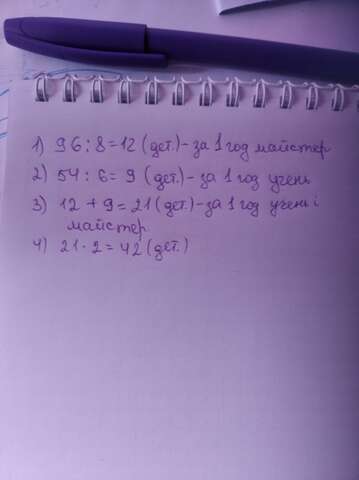 1) 96:8=12 (дет.)-за 1 год майстер
2) 54:6=9 (дет.)-за 1 год учень
3) 12+9=21 (дет.)-за 1 год учень і
майстер
4) 21·2=42 (дет.)